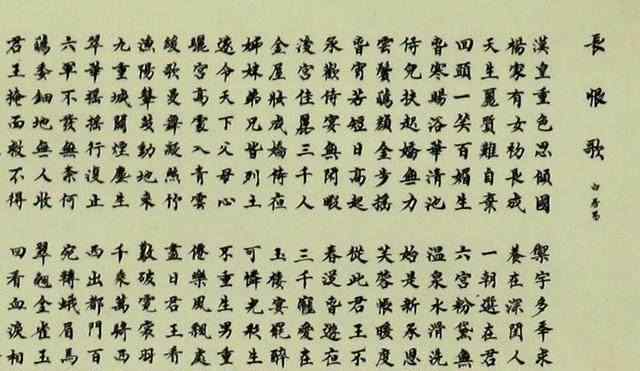 長恨歌
白居易
漢皇重色思傾國
御宇多年求
楊家有女初長成
養在深閨人
天生麗質難自棄
一朝選在君
回頭一笑百媚生
六宮粉黛無
春寒賜浴華清池
溫泉水滑洗
侍兒扶起嬌無力
始是新承恩
雲鬢蘤顏金步搖
芙蓉帳暖度
春宵苦短日高起
從此君王不
承歡侍宴無閒暇
春從春遊夜
後宮佳麗三千人
三千寵愛在
金屋妝成嬌侍夜
玉樓宴罷醉
姊妹弟兄皆列土
可憐光彩生
遂令天下父母心
不重生男重
驪宮高處入青雲
僊樂風飄處
緩歌曼舞凝絲竹
盡日君王看
漁陽鼙鼓動地來
破霓裳羽
九重城闕煙塵生
千乘萬騎西
翠華搖搖行復止
西出都門百
六軍不發無奈何
宛轉蛾眉馬
蘤委鈿地無人收
翠翹金雀玉
君王掩面救不得
回看血淚相